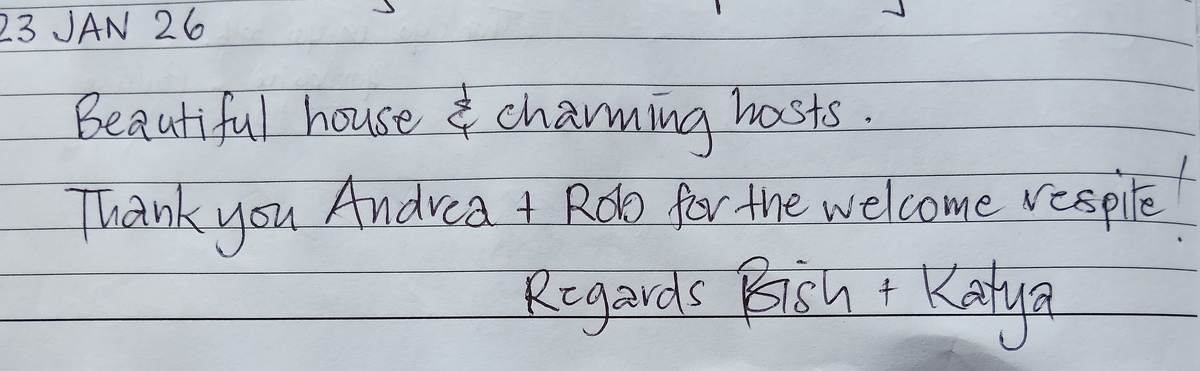 23 JAN 26
Beautiful house & charming hosts.
Thank you Andrea + Rob for the welcome respite!
Regards Bish + Katya